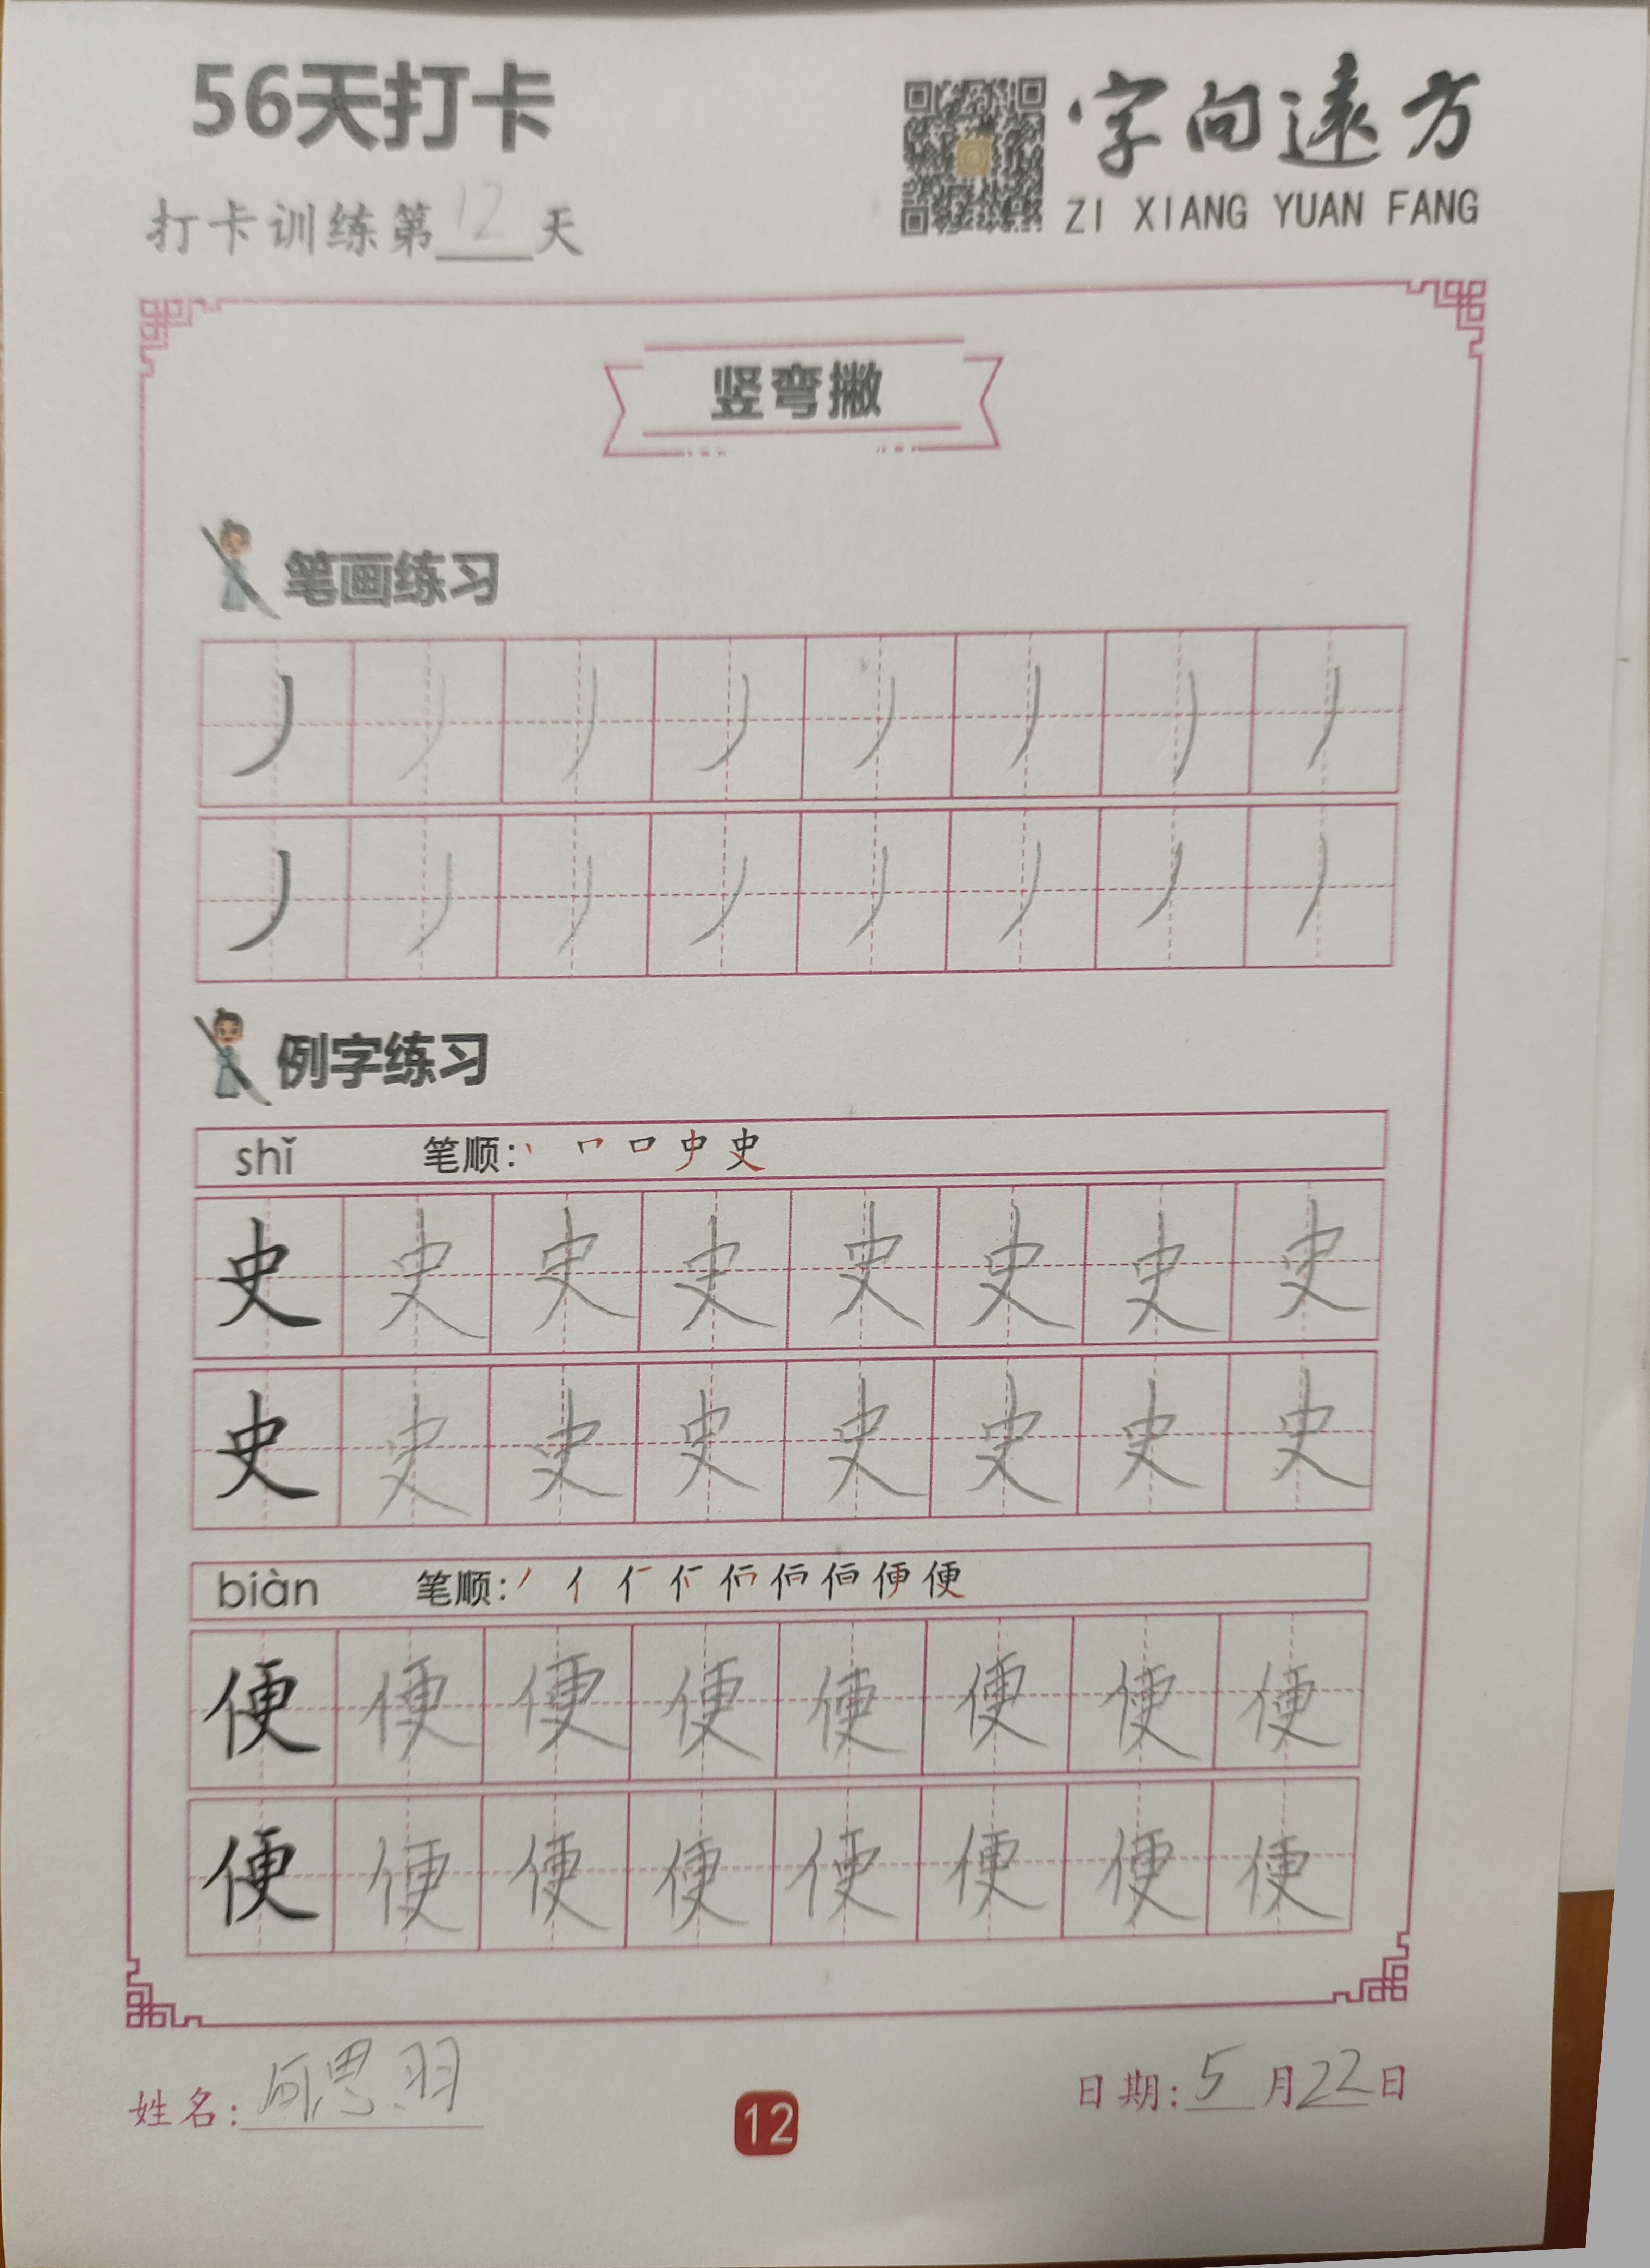 56天打卡
字向遠方
ZI XIANG YUAN FANG
打卡训练第12天
竖弯撇
笔画练习
丿丿丿丿丿丿丿丿
丿丿丿丿丿丿丿丿
例字练习
shǐ 笔顺:
史史史史史史史史
史史史史史史史史
biàn 笔顺:
便便便便便便便便
便便便便便便便便
姓名: 思羽
日期: 5月22日
12